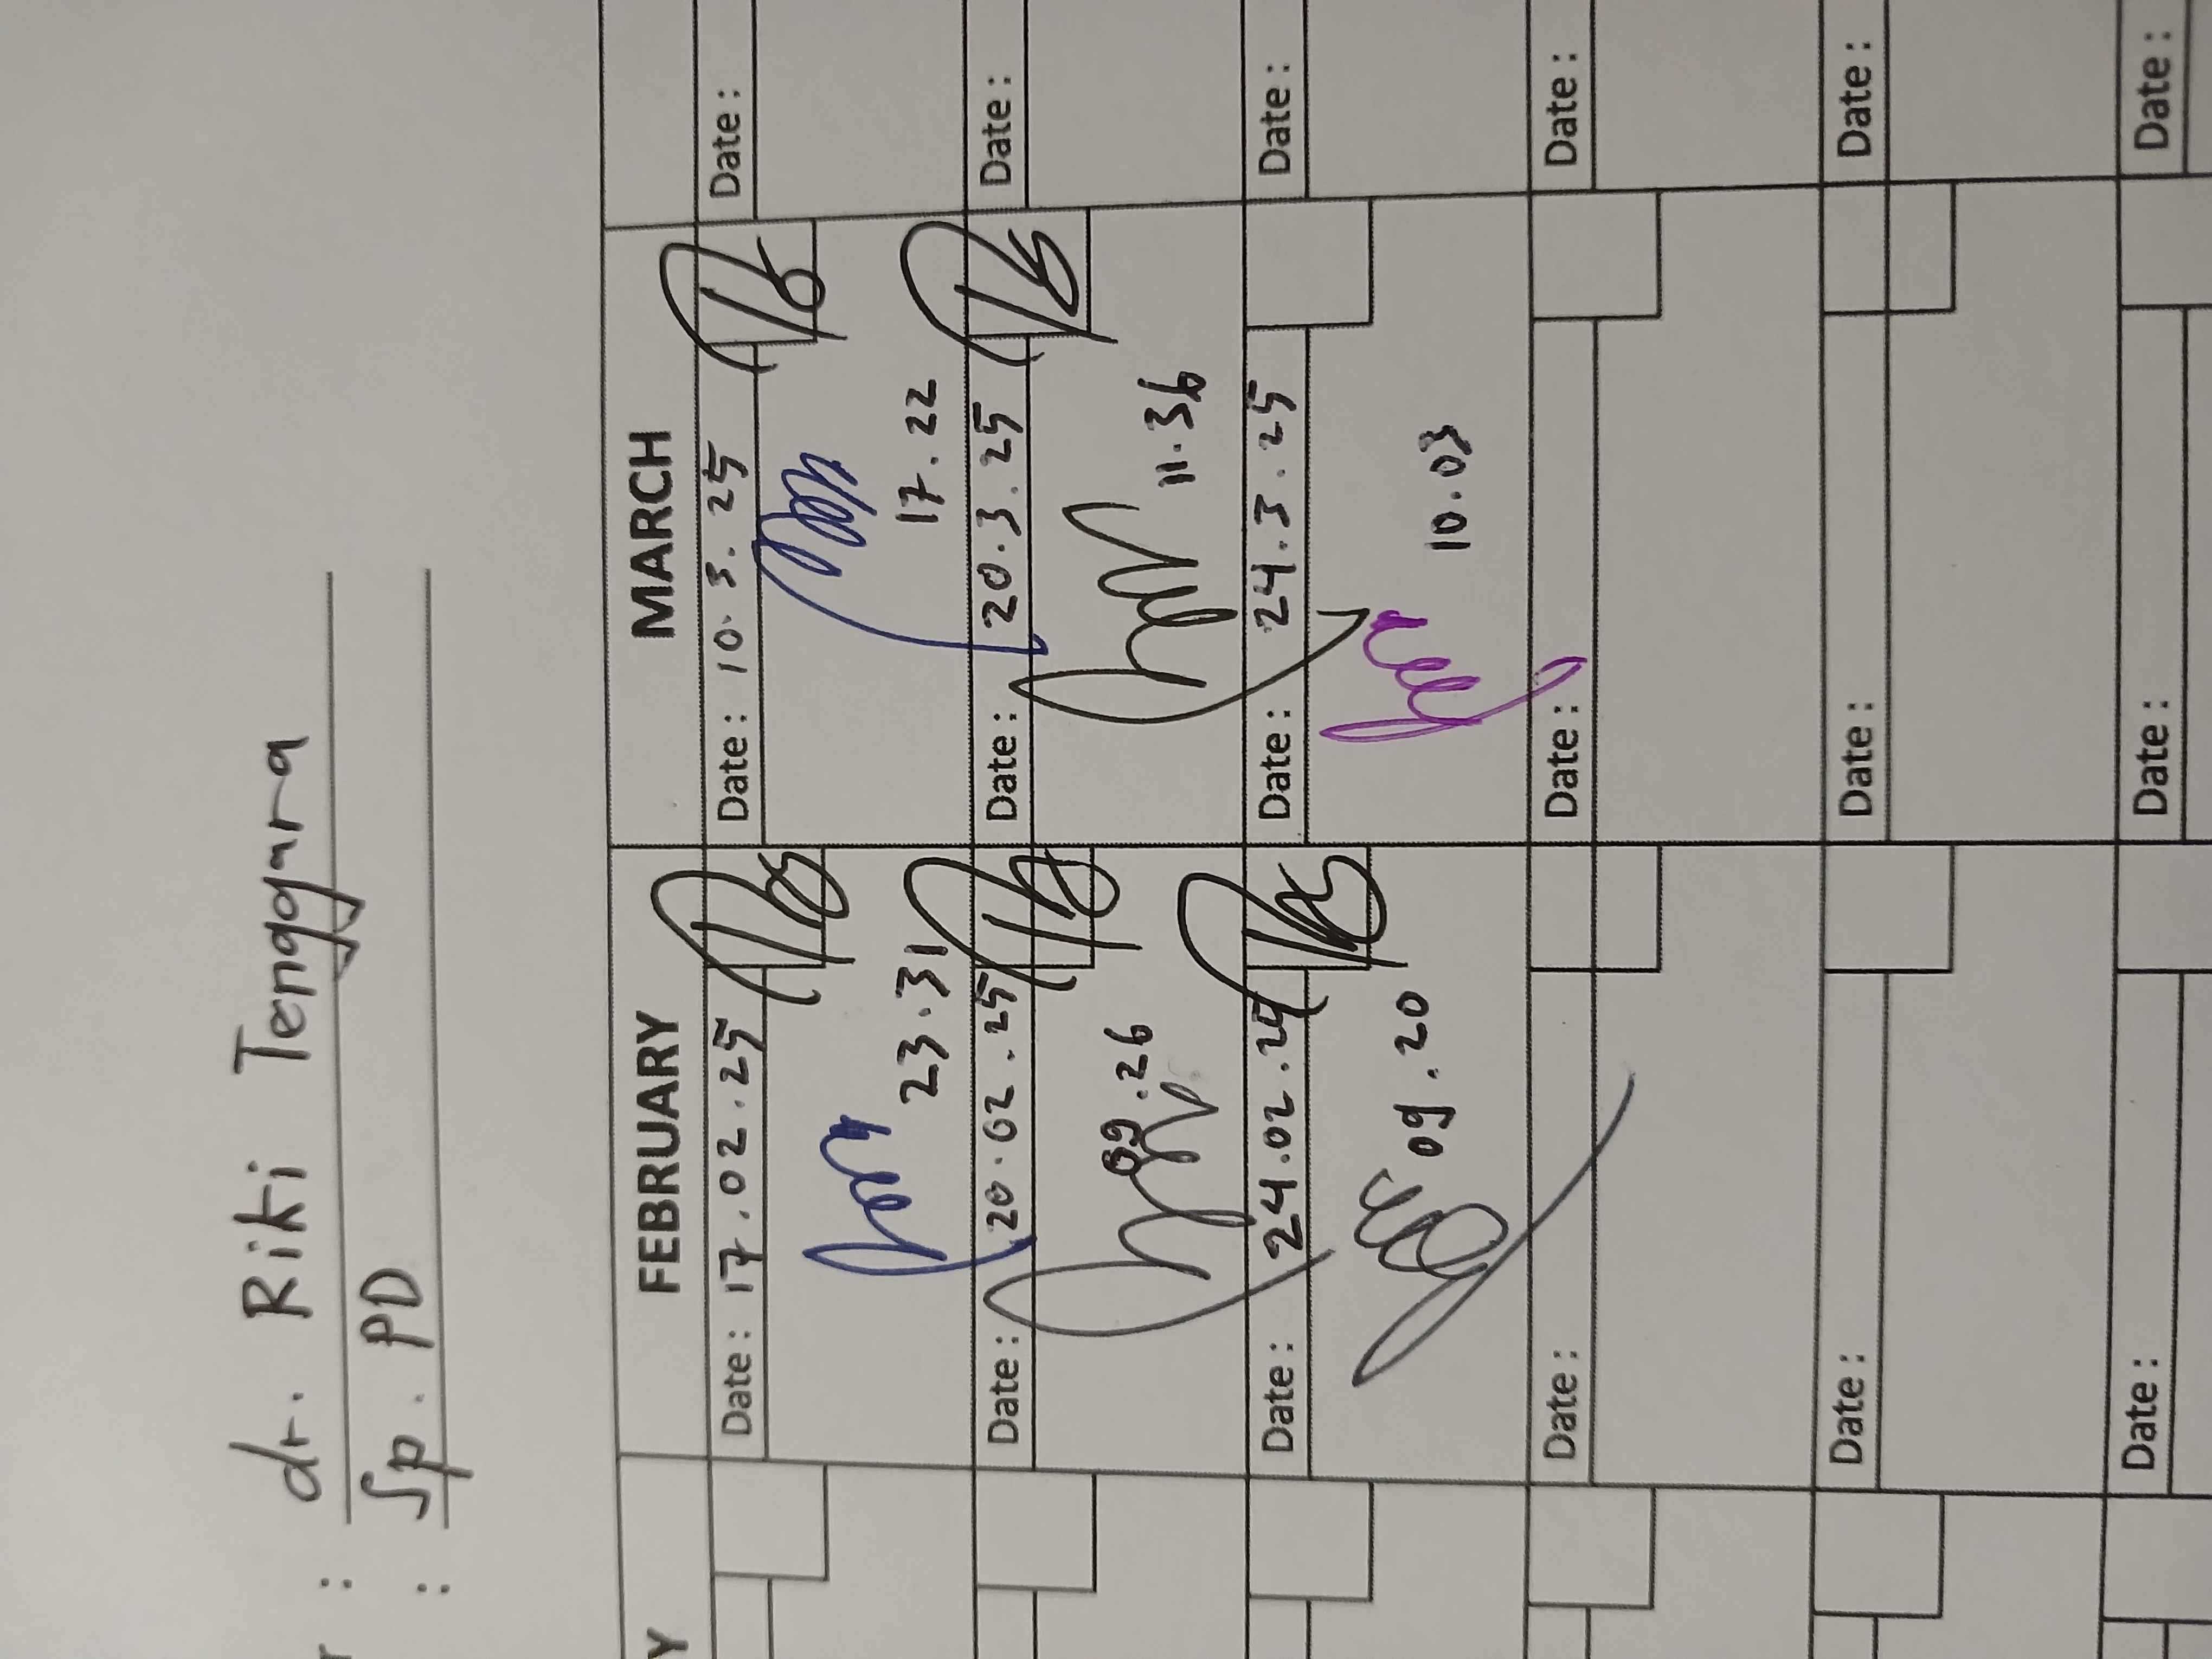 : dr. Riki Tenggara
: Sp. PD
FEBRUARY MARCH
Date: 17.02.25 Date: 10.3.25 Date:
23.31 17.22
Date: 20.02.25 Date: 20.3.25 Date:
09.26 11.36
Date: 24.02.25 Date: 24.3.25 Date:
09.20 10.03
Date: Date: Date:
Date: Date: Date:
Date: Date: Date: